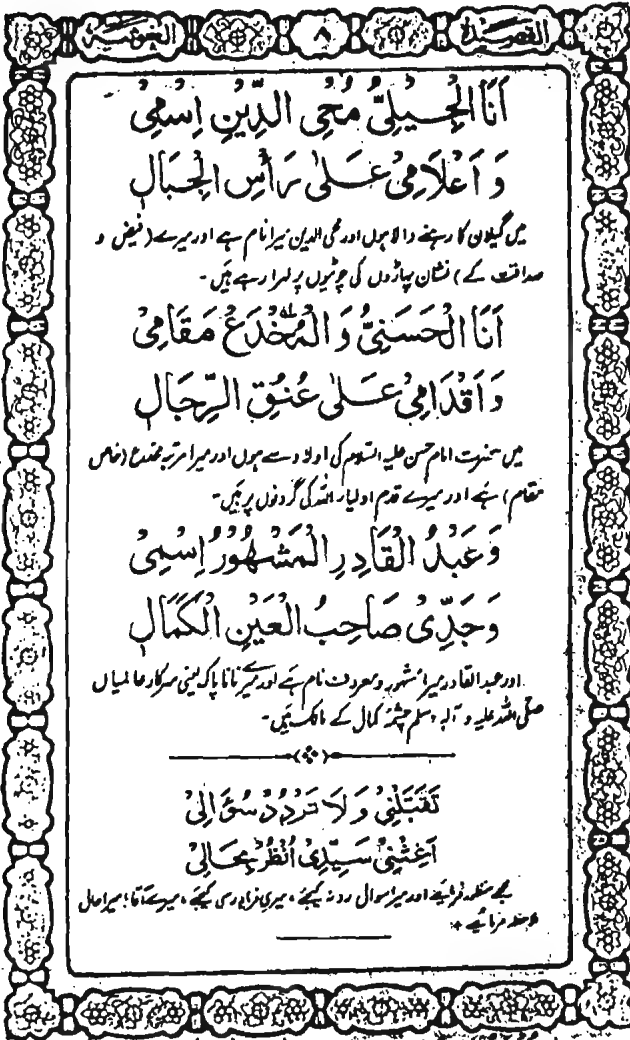 القصيدة ٨ الغوثية
اَنَا الْجِيْلِيُّ مُحْيِ الدِّيْنِ اِسْمِيْ
وَ اَعْلَامِيْ عَلٰى رَأْسِ الْجِبَالِ
میں گیلان کا رہنے والا ہوں اور محی الدین میرا نام ہے اور میرے (فیض و
صداقت کے) نشان پہاڑوں کی چوٹیوں پر لہرا رہے ہیں۔
اَنَا الْحَسَنِيُّ وَ الْمُخْدَعُ مَقَامِيْ
وَ اَقْدَامِيْ عَلٰى عُنُقِ الرِّجَالِ
میں حضرت امام حسن علیہ السلام کی اولاد سے ہوں اور میرا مرتبہ مخدع (خاص
مقام) ہے اور میرے قدم اولیاء اللہ کی گردنوں پر ہیں۔
وَ عَبْدُ الْقَادِرِ الْمَشْهُوْرُ اِسْمِيْ
وَ جَدِّيْ صَاحِبُ الْعَيْنِ الْكَمَالِ
اور عبدالقادر میرا مشہور و معروف نام ہے اور میرے نانا پاک یعنی سرکار عالمیاں
صلی اللہ علیہ و آلہ وسلم چشمۂ کمال کے مالک ہیں۔
تَقَبَّلْنِيْ وَ لَا تَرْدُدْ سُؤَالِيْ
اَغِثْنِيْ سَيِّدِيْ اُنْظُرْ بِحَالِيْ
مجھے منظور فرمائیے اور میرا سوال رد نہ کیجئے، میری فریاد رسی کیجئے، میرے آقا! میرا حال
ملاحظہ فرمائیے